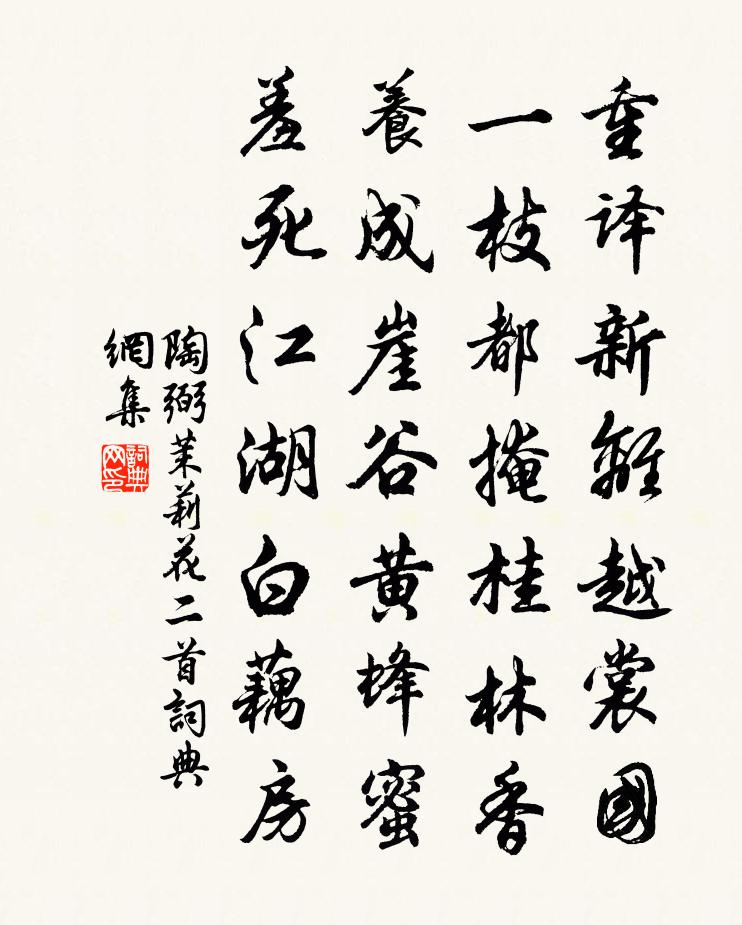 重译新離越裳國
一枝都掩桂林香
養成崖谷黄蜂蜜
羞死江湖白藕房
陶弼茉莉花二首詞典
網集
詞典
网印